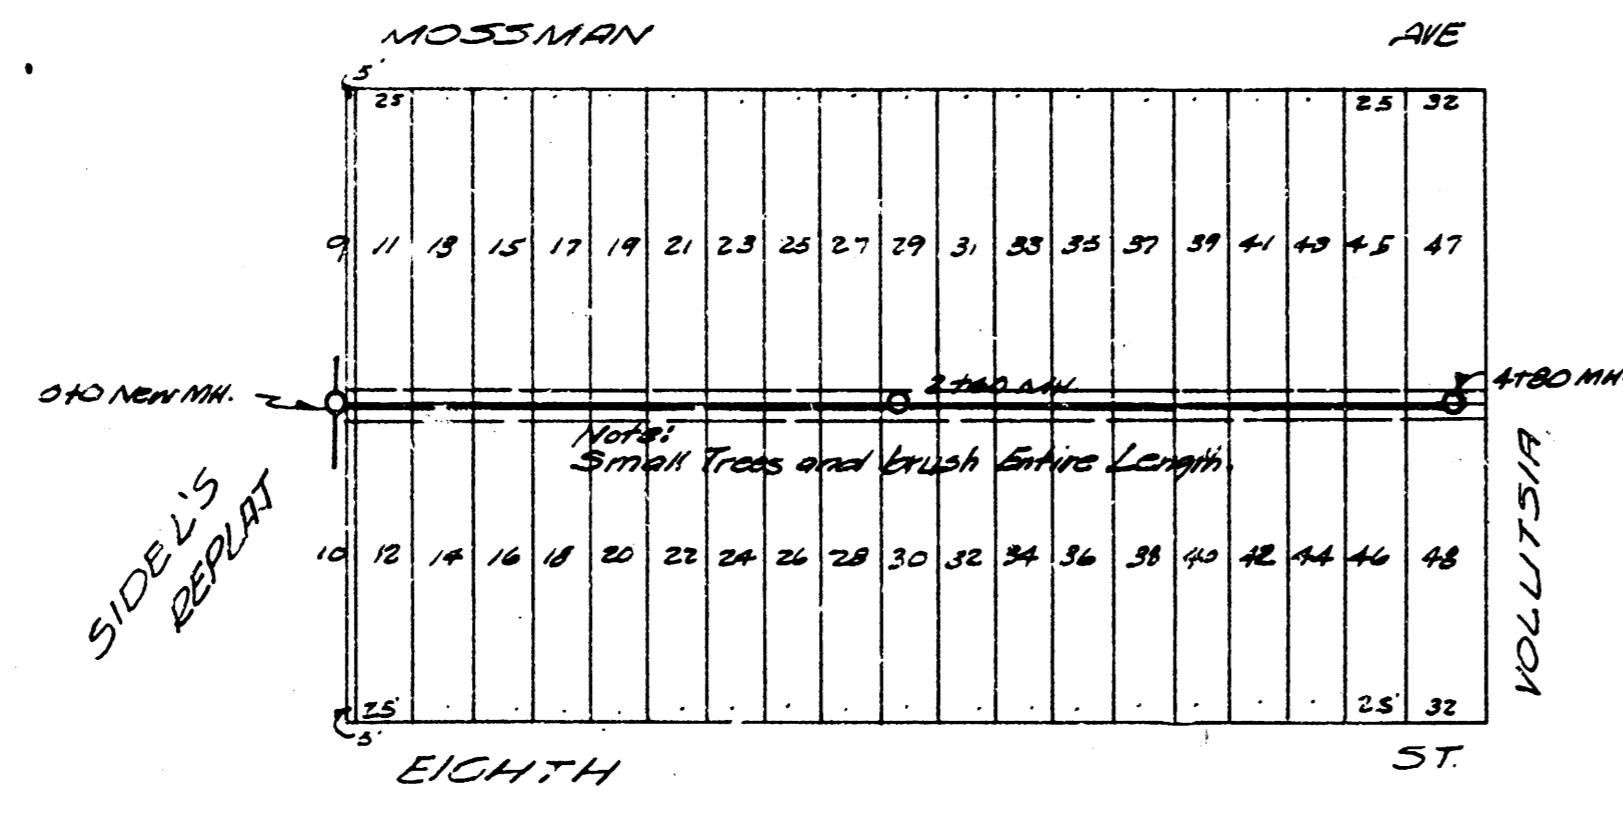 MOSSMAN AVE
5'
25 25 32
9 11 13 15 17 19 21 23 25 27 29 31 33 35 37 39 41 43 45 47
0+0 NEW MH.
2+40 MH
4+80 MH.
Note:
Small Trees and brush Entire Length.
SIDEL'S
REPLAT
VOLUTSIA
10 12 14 16 18 20 22 24 26 28 30 32 34 36 38 40 42 44 46 48
25' 25' 32
5'
EIGHTH ST.